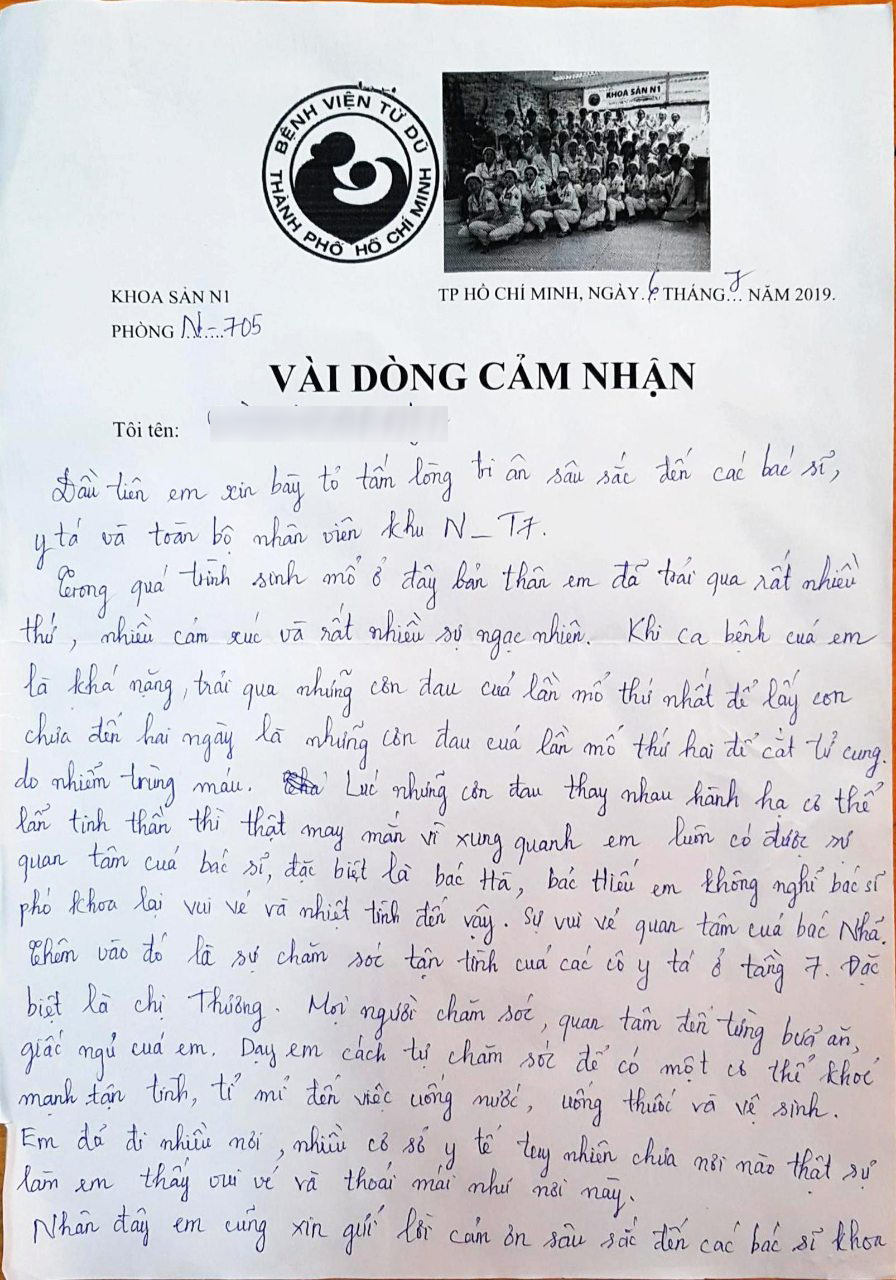 BỆNH VIỆN TỪ DŨ
THÀNH PHỐ HỒ CHÍ MINH
KHOA SẢN N1
KHOA SẢN N1
TP HỒ CHÍ MINH, NGÀY 6 THÁNG 7 NĂM 2019.
PHÒNG N-705
VÀI DÒNG CẢM NHẬN
Tôi tên:
Đầu tiên em xin bày tỏ tấm lòng tri ân sâu sắc đến các bác sĩ,
y tá và toàn bộ nhân viên khu N_T7.
Trong quá trình sinh mổ ở đây bản thân em đã trải qua rất nhiều
thứ, nhiều cảm xúc và rất nhiều sự ngạc nhiên. Khi ca bệnh của em
là khá nặng, trải qua những cơn đau của lần mổ thứ nhất để lấy con
chưa đến hai ngày là những cơn đau của lần mổ thứ hai để cắt tử cung.
do nhiễm trùng máu. Lúc những cơn đau thay nhau hành hạ cơ thể
lẫn tinh thần thì thật may mắn vì xung quanh em luôn có được sự
quan tâm của bác sĩ, đặc biệt là bác Hà, bác Hiếu em không nghĩ bác sĩ
phó khoa lại vui vẻ và nhiệt tình đến vậy. Sự vui vẻ quan tâm của bác Nhã.
Thêm vào đó là sự chăm sóc tận tình của các cô y tá ở tầng 7. Đặc
biệt là chị Thương. Mọi người chăm sóc, quan tâm đến từng bửa ăn,
giấc ngủ của em. Dạy em cách tự chăm sóc để có một cơ thể khoẻ
mạnh tận tình, tỉ mỉ đến việc uống nước, uống thuốc và vệ sinh.
Em đã đi nhiều nơi, nhiều cơ sở y tế tuy nhiên chưa nơi nào thật sự
làm em thấy vui vẻ và thoải mái như nơi này.
Nhân đây em cũng xin gửi lời cảm ơn sâu sắc đến các bác sĩ khoa